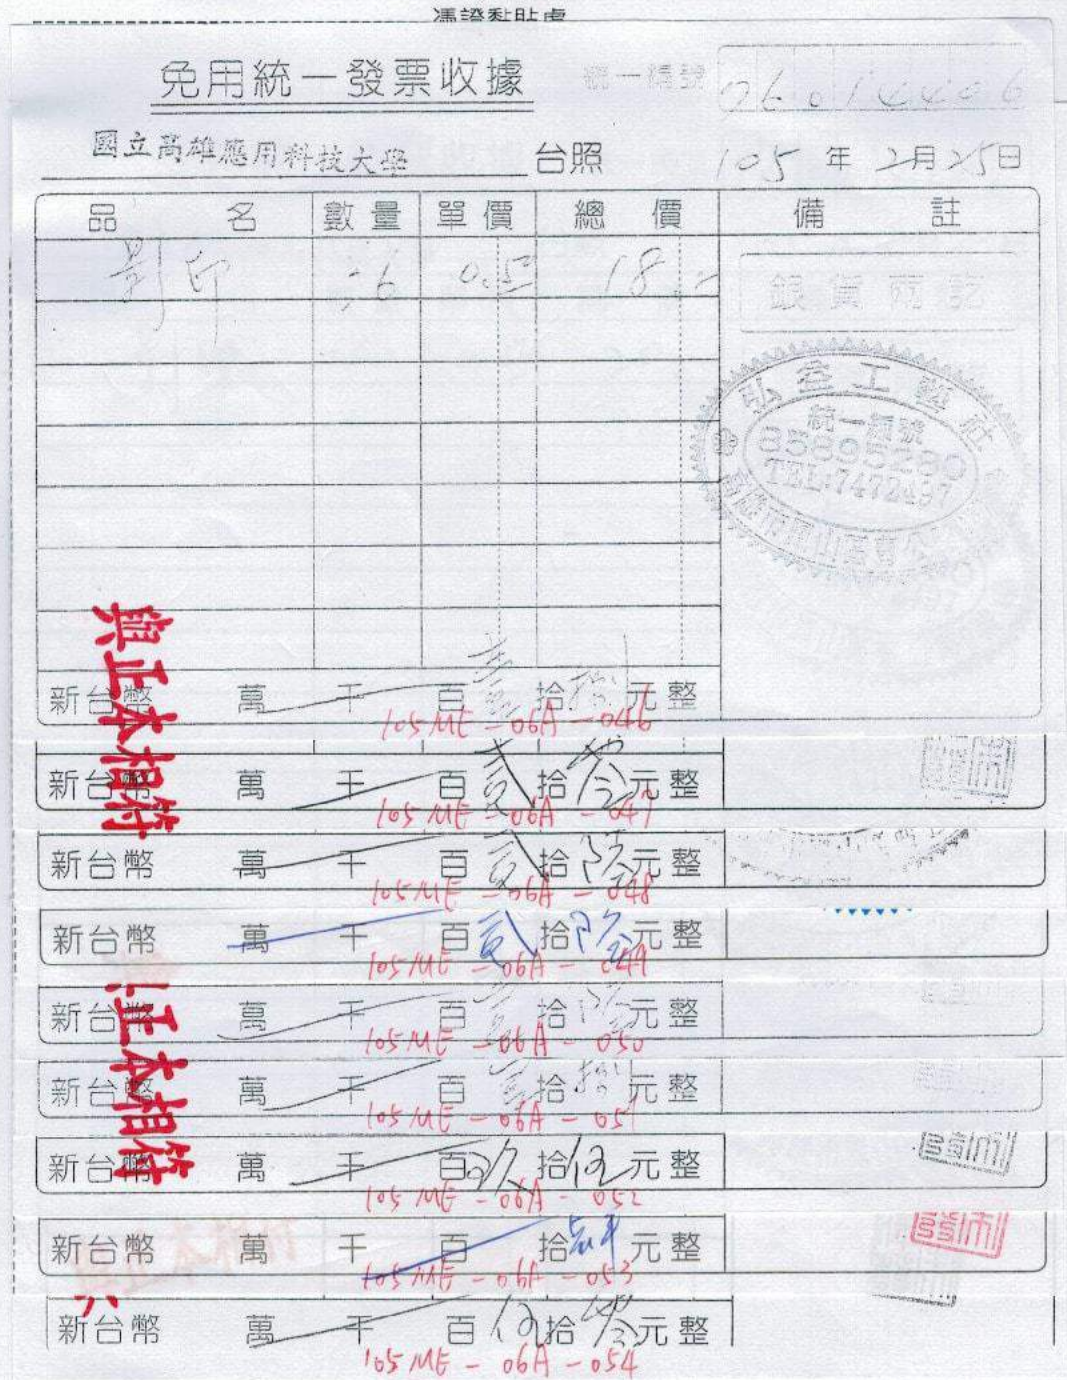 憑證黏貼處
免用統一發票收據 統一編號
國立高雄應用科技大學 台照 105 年 2月25日
品名 數量 單價 總價 備註
影印 36 0.5 18
銀貨兩訖
弘叁工藝社
統一編號
85895290
TEL:7472497
與正本相符
新台幣 萬 千 百 壹 拾 捌 元整
105ME-06A-046
新台幣 萬 千 百 貳 拾 零 元整
105ME-06A-047
新台幣 萬 千 百 貳 拾 陸 元整
105ME-06A-048
新台幣 萬 千 百 貳 拾 陸 元整
105ME-06A-049
新台幣 萬 千 百 拾 陸 元整
105ME-06A-050
正本相符
新台幣 萬 千 百 拾 捌 元整
105ME-06A-051
新台幣 萬 千 百 拾 伍 元整
105ME-06A-052
新台幣 萬 千 百 拾 元整
105ME-06A-053
新台幣 萬 千 百 伍 拾 零 元整
105ME-06A-054